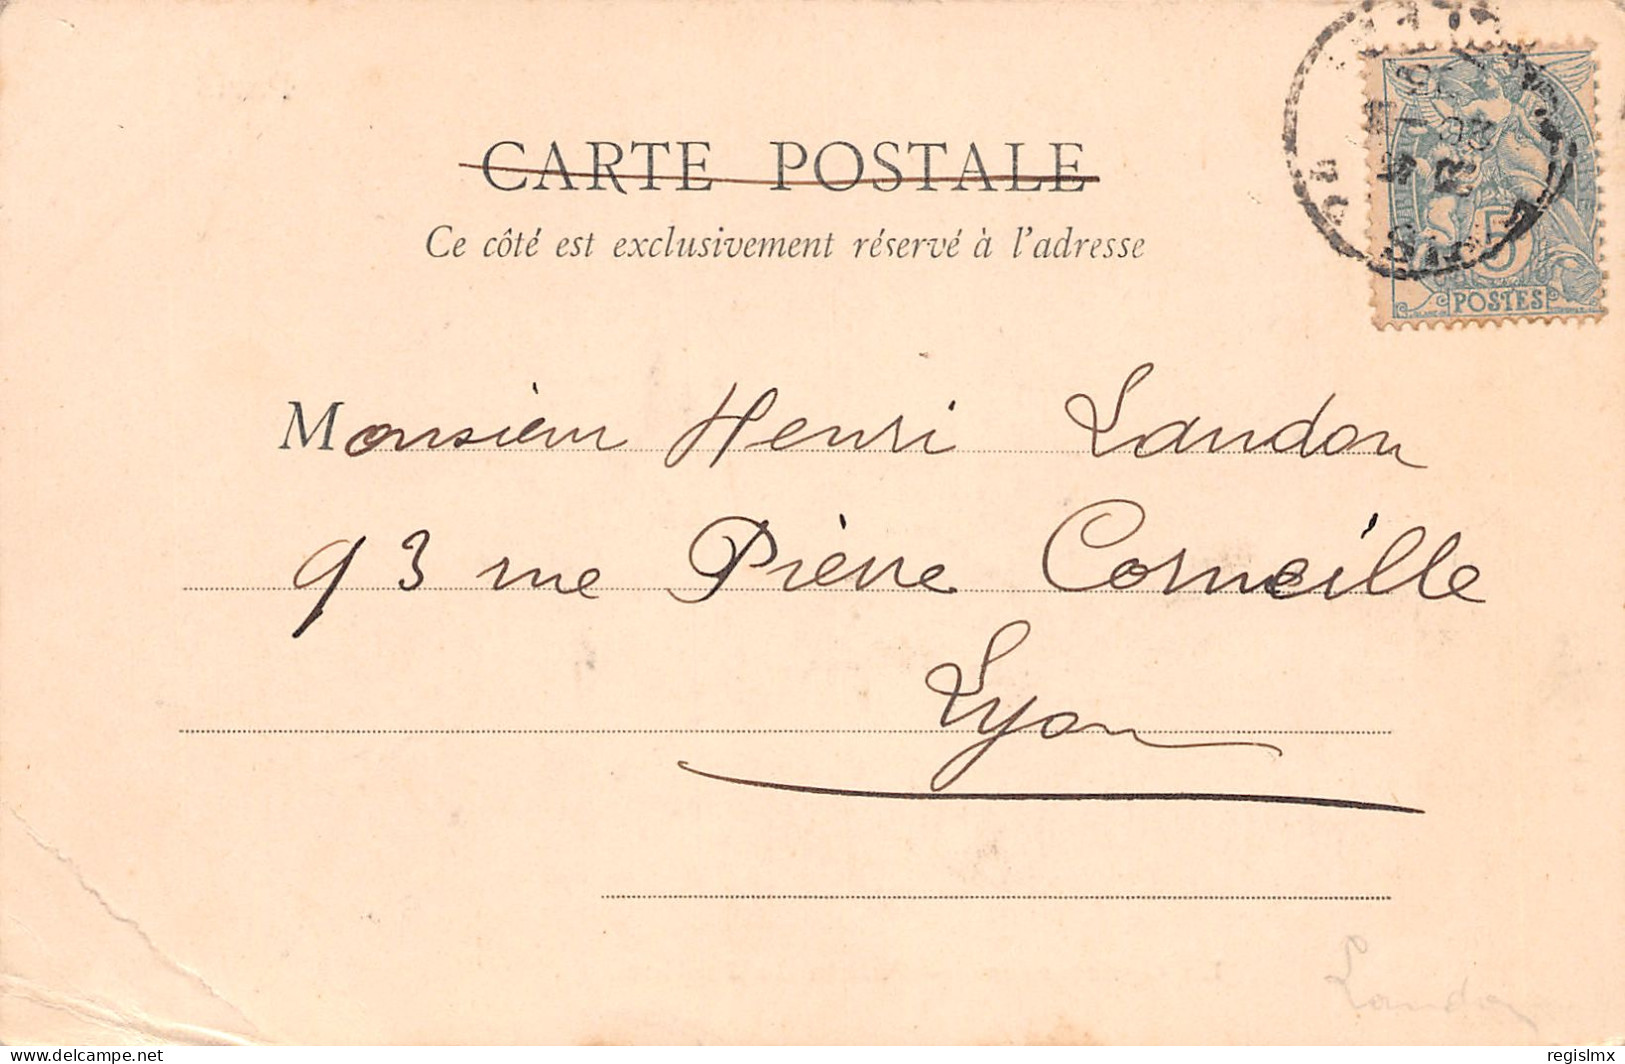 CARTE POSTALE
Ce côté est exclusivement réservé à l'adresse
5
POSTES
Monsieur Henri Landon
93 rue Pierre Corneille
Lyon
Landon
delcampe.net
regislmx